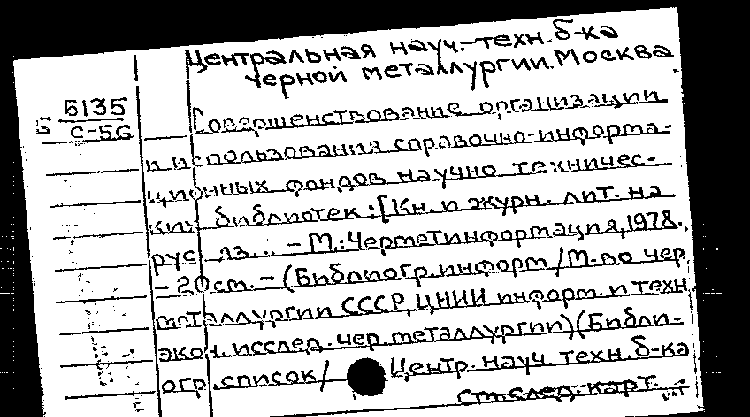 Центральная науч.-техн. б-ка
черной металлургии. Москва.
Б 5135
С-56
Совершенствование организации
и использования справочно-информа-
ционных фондов научно-техничес-
ких библиотек: [Кн. и журн. лит. на
рус. яз... - М.: Черметинформация, 1978.
- 20 см. - (Библиогр. информ / М-во чер.
металлургии СССР, ЦНИИ информ. и техн.
экон. исслед. чер. металлургии) (Библи-
огр. список / Центр. науч. техн. б-ка
см. след. карт.